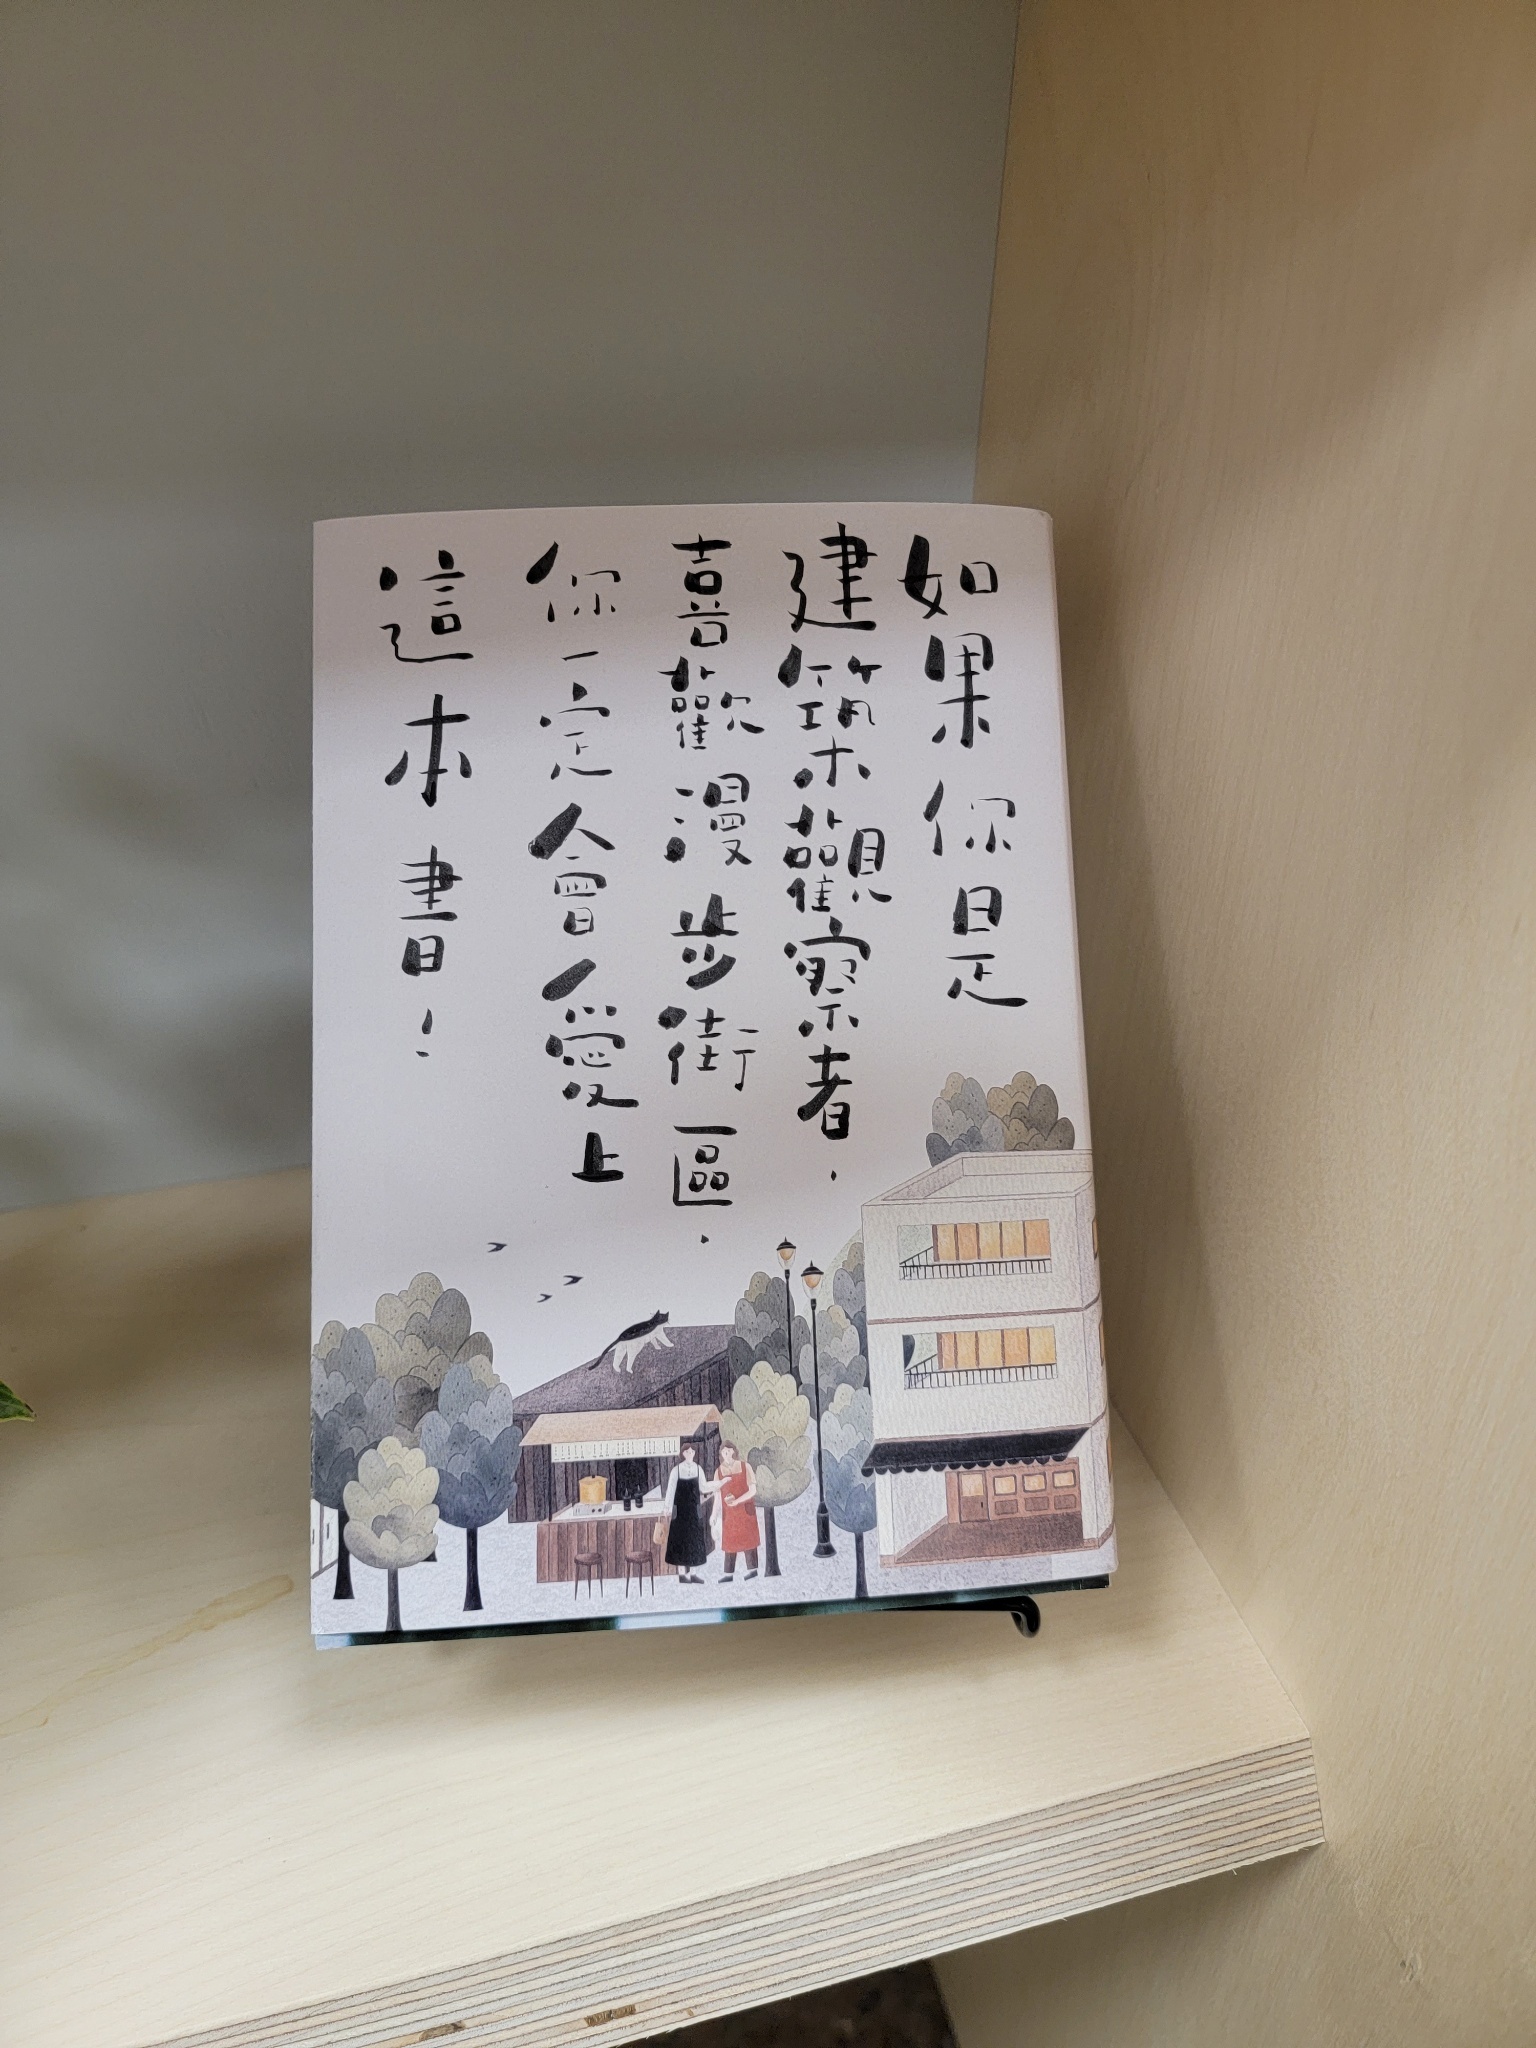 如果你是
建築觀察者．
喜歡漫步街區．
你一定會愛上
這本書！